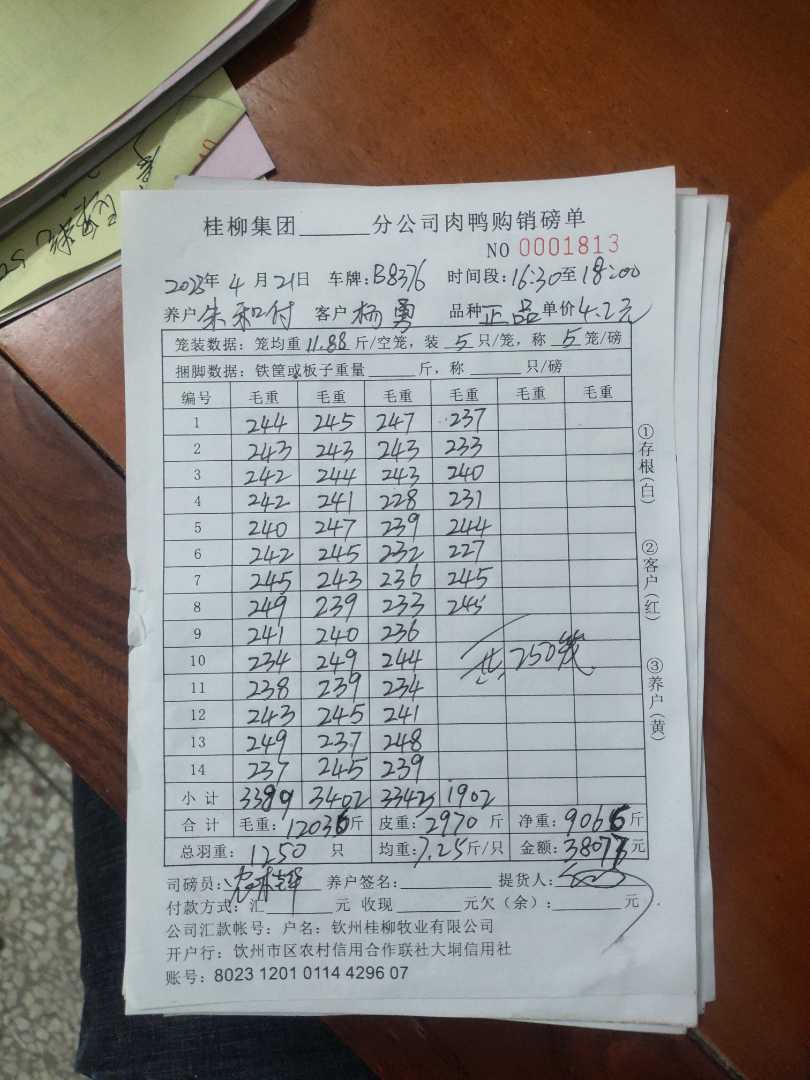 桂柳集团______分公司肉鸭购销磅单
NO 0001813
2023年 4月 21日 车牌:B8376 时间段:16:30至18:00
养户 朱和付 客户 杨勇 品种 正品 单价4.2元
笼装数据:笼均重 11.88 斤/空笼,装 5 只/笼,称 5 笼/磅
捆脚数据:铁筐或板子重量______斤,称______只/磅
编号 毛重 毛重 毛重 毛重 毛重 毛重
1 244 245 247 237
2 243 243 243 233
3 242 244 243 240
4 242 241 228 231
5 240 247 239 244
6 242 245 232 227
7 245 243 236 245
8 249 239 233 245
9 241 240 236
10 234 249 244 共250笼
11 238 239 234
12 243 245 241
13 249 237 248
14 237 245 239
小计 3389 3402 3343 1902
合计 毛重:12036斤 皮重:2970斤 净重:9066斤
总羽重:1250只 均重:7.25斤/只 金额:38077元
司磅员: 养户签名:______ 提货人:
付款方式:汇______元 收现______元欠(余):______元
公司汇款帐号:户名:钦州桂柳牧业有限公司
开户行:钦州市区农村信用合作联社大垌信用社
账号:8023 1201 0114 4296 07
①存根(白)
②客户(红)
③养户(黄)